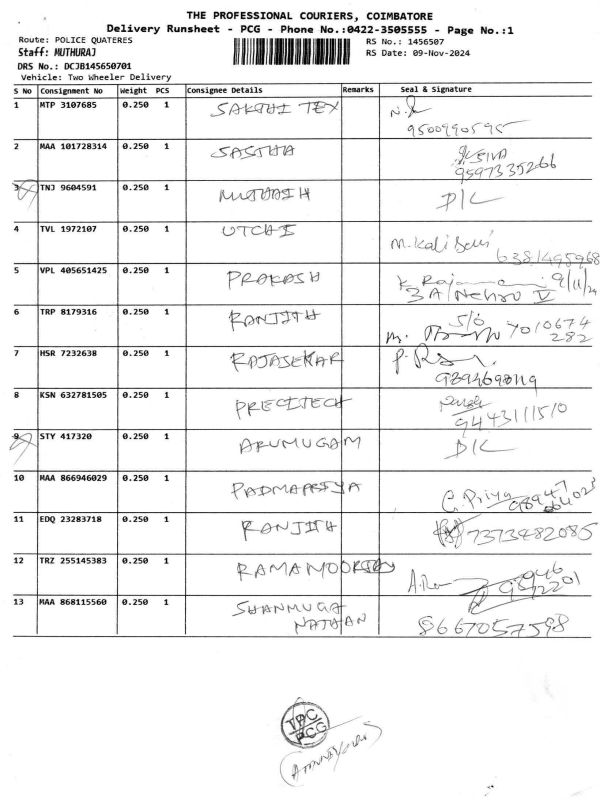 THE PROFESSIONAL COURIERS, COIMBATORE
Delivery Runsheet - PCG - Phone No.:0422-3505555 - Page No.:1
Route: POLICE QUATERES
RS No.: 1456507
Staff: MUTHURAJ
RS Date: 09-Nov-2024
DRS No.: DCJB145650701
Vehicle: Two Wheeler Delivery
S No Consignment No Weight PCS Consignee Details Remarks Seal & Signature
1 MTP 3107685 0.250 1 SAKTHI TEX
9500990595
2 MAA 101728314 0.250 1 SASTHA
SIVA
9597335266
3 TNJ 9604591 0.250 1 D/L
4 TVL 1972107 0.250 1 UTCHI
M. Kali
6381495968
5 VPL 405651425 0.250 1 PRAKASH
9/11/24
3A Nehru V
6 TRP 8179316 0.250 1 RANJITH
S/O
7010674
282
7 HSR 7232638 0.250 1 RAJASEKAR
8 KSN 632781505 0.250 1 PRECITECH
9443111510
9 STY 417320 0.250 1 ARUMUGAM D/L
10 MAA 866946029 0.250 1 PADMAPRIYA
G. Priya
11 EDQ 23283718 0.250 1 RANJITH 7373482085
12 TRZ 255145383 0.250 1 RAMAMOORTHY
13 MAA 868115560 0.250 1 SHANMUGA
NATHAN
8667057598
TPC
PCG